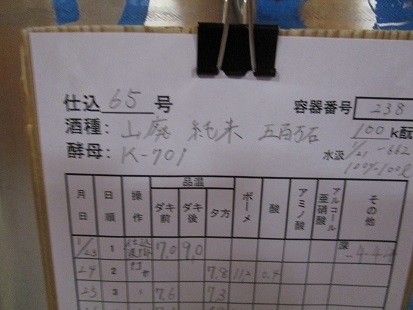 仕込 65 号
容器番号 238
酒種: 山廃 純米 五百万石
100 k酛
酵母: K-701
水汲 1/21 -662
100%-100L
月日 日順 操作 品温 ボーメ 酸 アミノ酸 亜硝酸 アルコール その他
ダキ前 ダキ後 夕方
1/23 1 仕込 7.0 9.0
24 2 打セ 7.8 11.2 0.4
25 3 〃 7.6 7.3